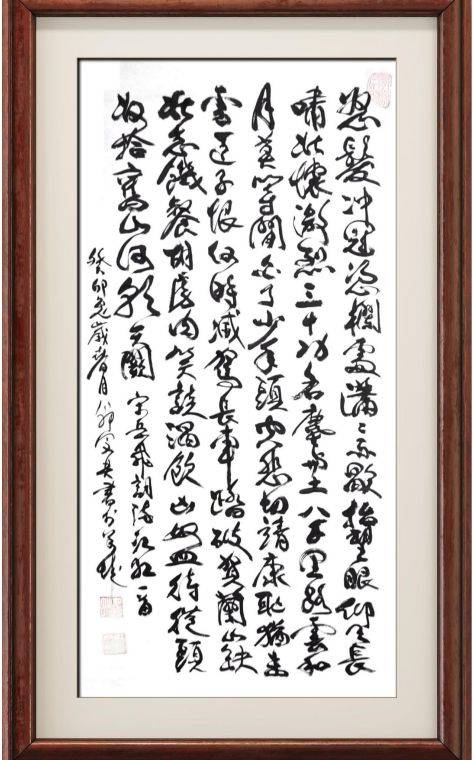 怒髮冲冠憑欄處瀟〻雨歇擡望眼仰天長
嘯壯懷激烈三十功名塵與土八千里路雲和
月莫等閒白了少年頭空悲切靖康恥猶未
雪臣子恨何時滅駕長車踏破賀蘭山缺
壯志饑餐胡虜肉笑談渴飲匈奴血待從頭
收拾舊山河朝天闕 宋岳飛詞滿江紅一首
癸卯兔歲春月